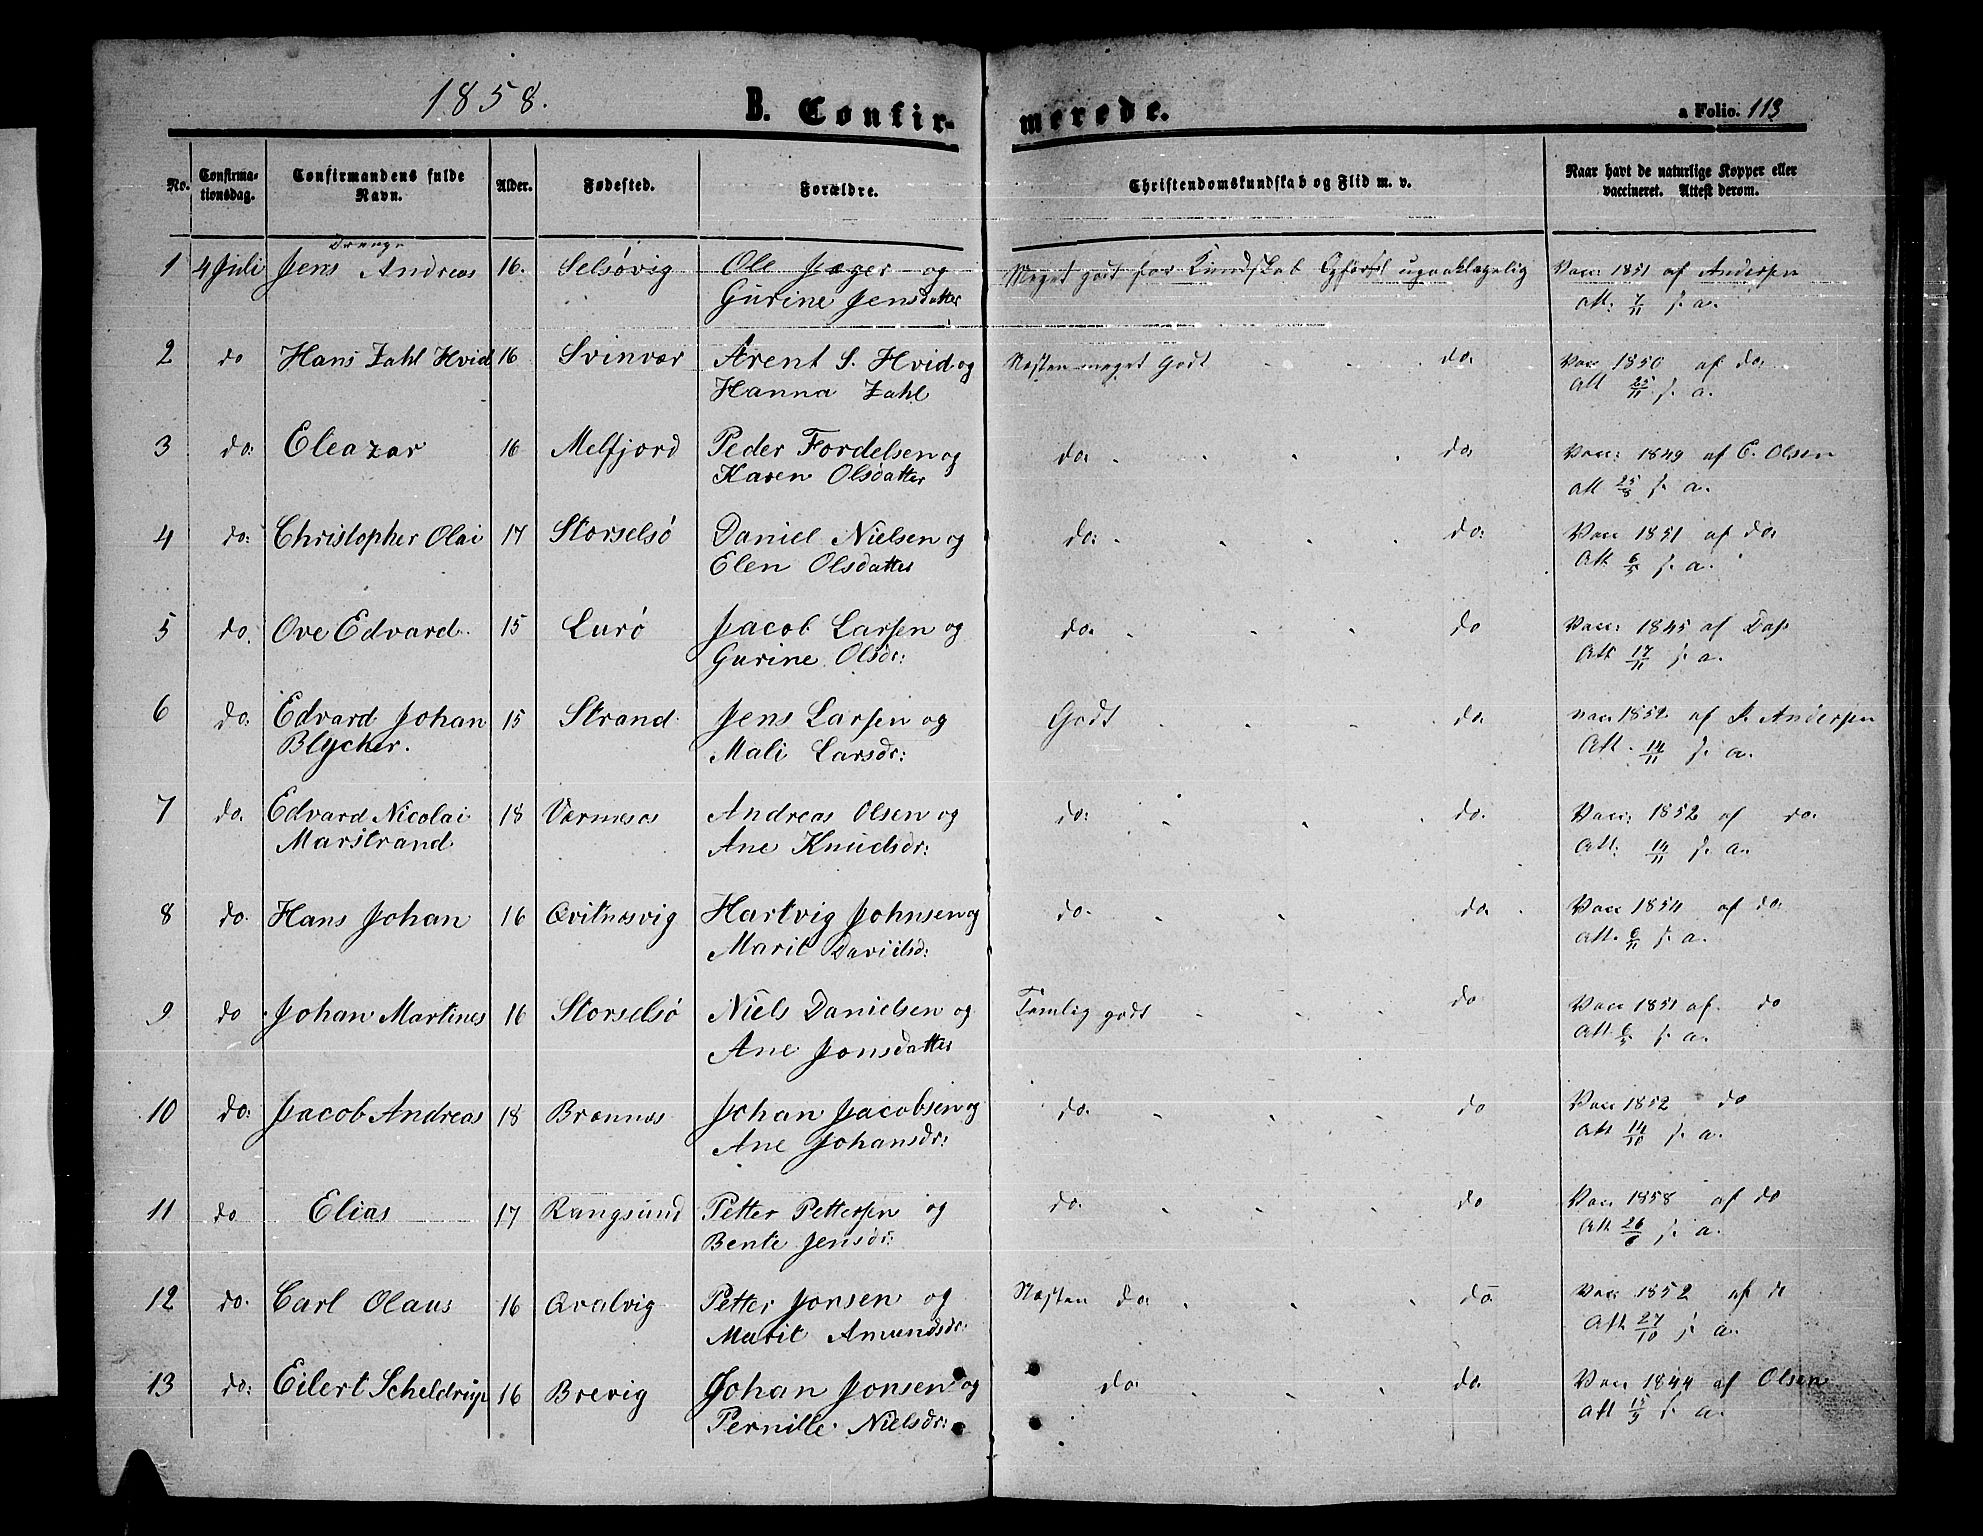 1858. B. Confirmerede. a Folio. 113
No. Confirmationsdag. Confirmandens fulde Navn. Alder. Fødested. Forældre. Christendomskundskab og Flid m. v. Naar havt de naturlige Kopper eller vaccineret. Attest derom.
Drenge
1 4 Juli Jens Andreas 16. Selsøvig Ole Jæger og Meget godt for Kundskab Opførsel upaaklagelig Vacc: 1851 af Andersen
Gurine Jensdatter Att: 7/11 s. a.
2 do Hans Zahl Hvid 16 Svinvær Arent S. Hvid og Næsten meget Godt do. Vacc 1850 af do.
Hanna Zahl Att 25/11 s. a.
3 do: Eleazar 16 Melfjord Peder Fordelsen og do. do Vacc: 1849 af C. Olsen
Karen Olsdatter Att 25/8 s. a.
4 do: Christopher Olai 17 Storselsø Daniel Nielsen og do: do: Vacc 1851 af do
Elen Olsdatter Att 6/5 s. a.
5 do. Ove Edvard. 15 Lurø Jacob Larsen og do. do Vacc: 1845 af Das
Gurine Olsdr: Att 17/11 s. a.
6 do. Edvard Johan 15 Strand. Jens Larsen og Godt do. vacc 1852 af J. Andersen
Blycher. Mali Larsdr: Att. 14/11 s. a.
7 do. Edvard Nicolai 18 Værnæs Andreas Olsen og do: do. Vacc: 1852 af do.
Marstrand Ane Knudsdr: Att: 14/11 s. a.
8 do. Hans Johan 16 Qvitnæsvig Hartvig Johnsen og do. do. Vacc 1854 af do
Marit Davidsd: Att. 6/11 s. a.
9 do Johan Martines 16 Storselsø Niels Danielsen og Temlig godt do Vacc 1851 af. do
Ane Jonsdatter Att 6/5 s. a.
10 do: Jacob Andreas 18 Brænnæs Johan Jacobsen og do. do Vacc 1852 do
Ane Johansdr: Att 14/10 s. a.
11 do Elias 17 Rangsund Petter Pettersen og do. do Vacc 1858 af do
Bente Jensdr: Att 26/6 s. a.
12 do. Carl Olaus 16 Qvalvig Petter Jonsen og Næsten do. do Vacc 1852 af do
Marit Amundsdr: Att 27/10 s. a.
13 do: Eilert Scheldrup 16 Brevig Johan Jonsen og do do. Vacc 1844 af Olsen
Pernille Nielsdr: Att 15/9 s. a.